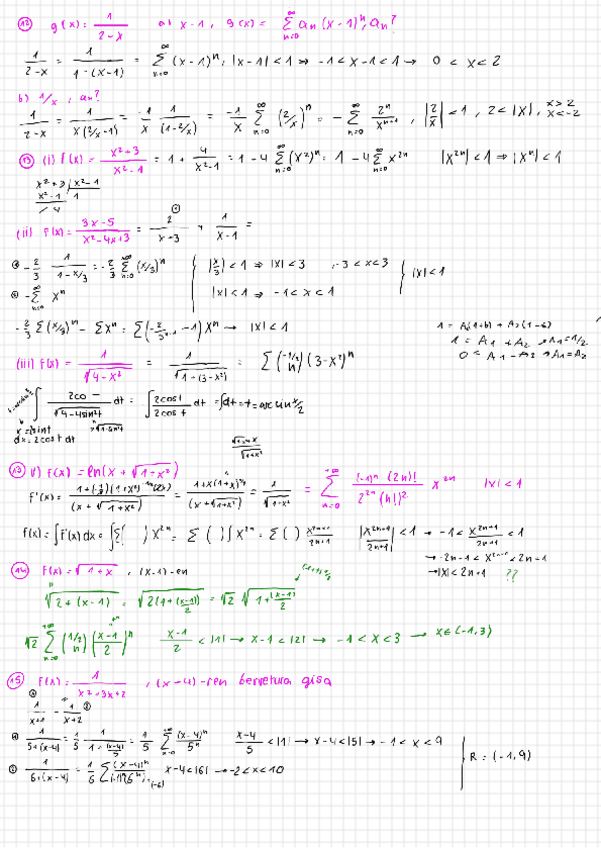 12 g(x) = 1/(2-x) at x-1, g(x) = ∑_{n=0}^{∞} a_n (x-1)^n, a_n?
1/(2-x) = 1/(1-(x-1)) = ∑_{n=0}^{∞} (x-1)^n, |x-1| < 1 ⇒ -1 < x-1 < 1 → 0 < x < 2
b) 1/x, a_n?
1/(2-x) = 1/(x(2/x-1)) = -1/x 1/(1-2/x) = -1/x ∑_{n=0}^{∞} (2/x)^n = -∑_{n=0}^{∞} 2^n/x^{n+1}, |2/x| < 1, 2 < |x|, x>2 x<-2
13 (i) f(x) = (x²+3)/(x²-1) = 1 + 4/(x²-1) = 1-4 ∑_{n=0}^{∞} (x²)^n = 1-4 ∑_{n=0}^{∞} x^{2n} |x^{2n}| < 1 ⇒ |x^n| < 1
x²+3 | x²-1
x²-1 1
/ 4
(ii) f(x) = (3x-5)/(x²-4x+3) = 2/(x-3) + 1/(x-1) =
-2/3 1/(1-x/3) = -2/3 ∑_{n=0}^{∞} (x/3)^n |x/3| < 1 ⇒ |x| < 3, -3 < x < 3 |x| < 1
-∑_{n=0}^{∞} x^n |x| < 1 ⇒ -1 < x < 1
-2/3 ∑ (x/3)^n - ∑ x^n = |x| < 1
1 = A_1 + A_2 → A_1 = 1/2
0 = A_1 - A_2 → A_1 = A_2
(iii) f(x) = 1/√(4-x²) = 1/√(1+(3-x²)) = ∑ (-1/2 n) (3-x²)^n
dt = ∫ 2cost/2cost dt = ∫dt = t = arcsin x/2
x = 2sint
dx = 2cost dt
13 f(x) = ln(x + √(1+x²))
f'(x) = = 1/√(1+x²) = ∑_{n=0}^{+∞} (-1)^n (2n)!/(2^{2n} (n!)²) x^{2n} |x| < 1
f(x) = ∫f'(x) dx = ∫∑( ) x^{2n} = ∑ ( ) ∫x^{2n} = ∑ ( ) x^{2n+1}/(2n+1) |x^{2n+1}/(2n+1)| < 1 → -1 < x^{2n+1}/(2n+1) < 1
→ -2n-1 < x^{2n+1} < 2n+1
→ |x| < 2n+1 ??
14 f(x) = √(1+x), (x-1)-en
√(2+(x-1)) = √(2(1+(x-1)/2)) = √2 √(1+(x-1)/2)
√2 ∑_{n=0}^{+∞} (1/2 n) ((x-1)/2)^n (x-1)/2 < |1| → x-1 < |2| → -1 < x < 3 → x∈(-1,3)
15 f(x) = 1/(x²+3x+2), (x-4)-ren berretura gisa
1/(x+1) - 1/(x+2)
1/(5+(x-4)) = 1/5 1/(1+(x-4)/5) = 1/5 ∑_{n=0}^{+∞} (x-4)^n/5^n (x-4)/5 < |1| → x-4 < |5| → -1 < x < 9 R = (-1,9)
1/(6+(x-4)) = x-4 < |6| → -2 < x < 10